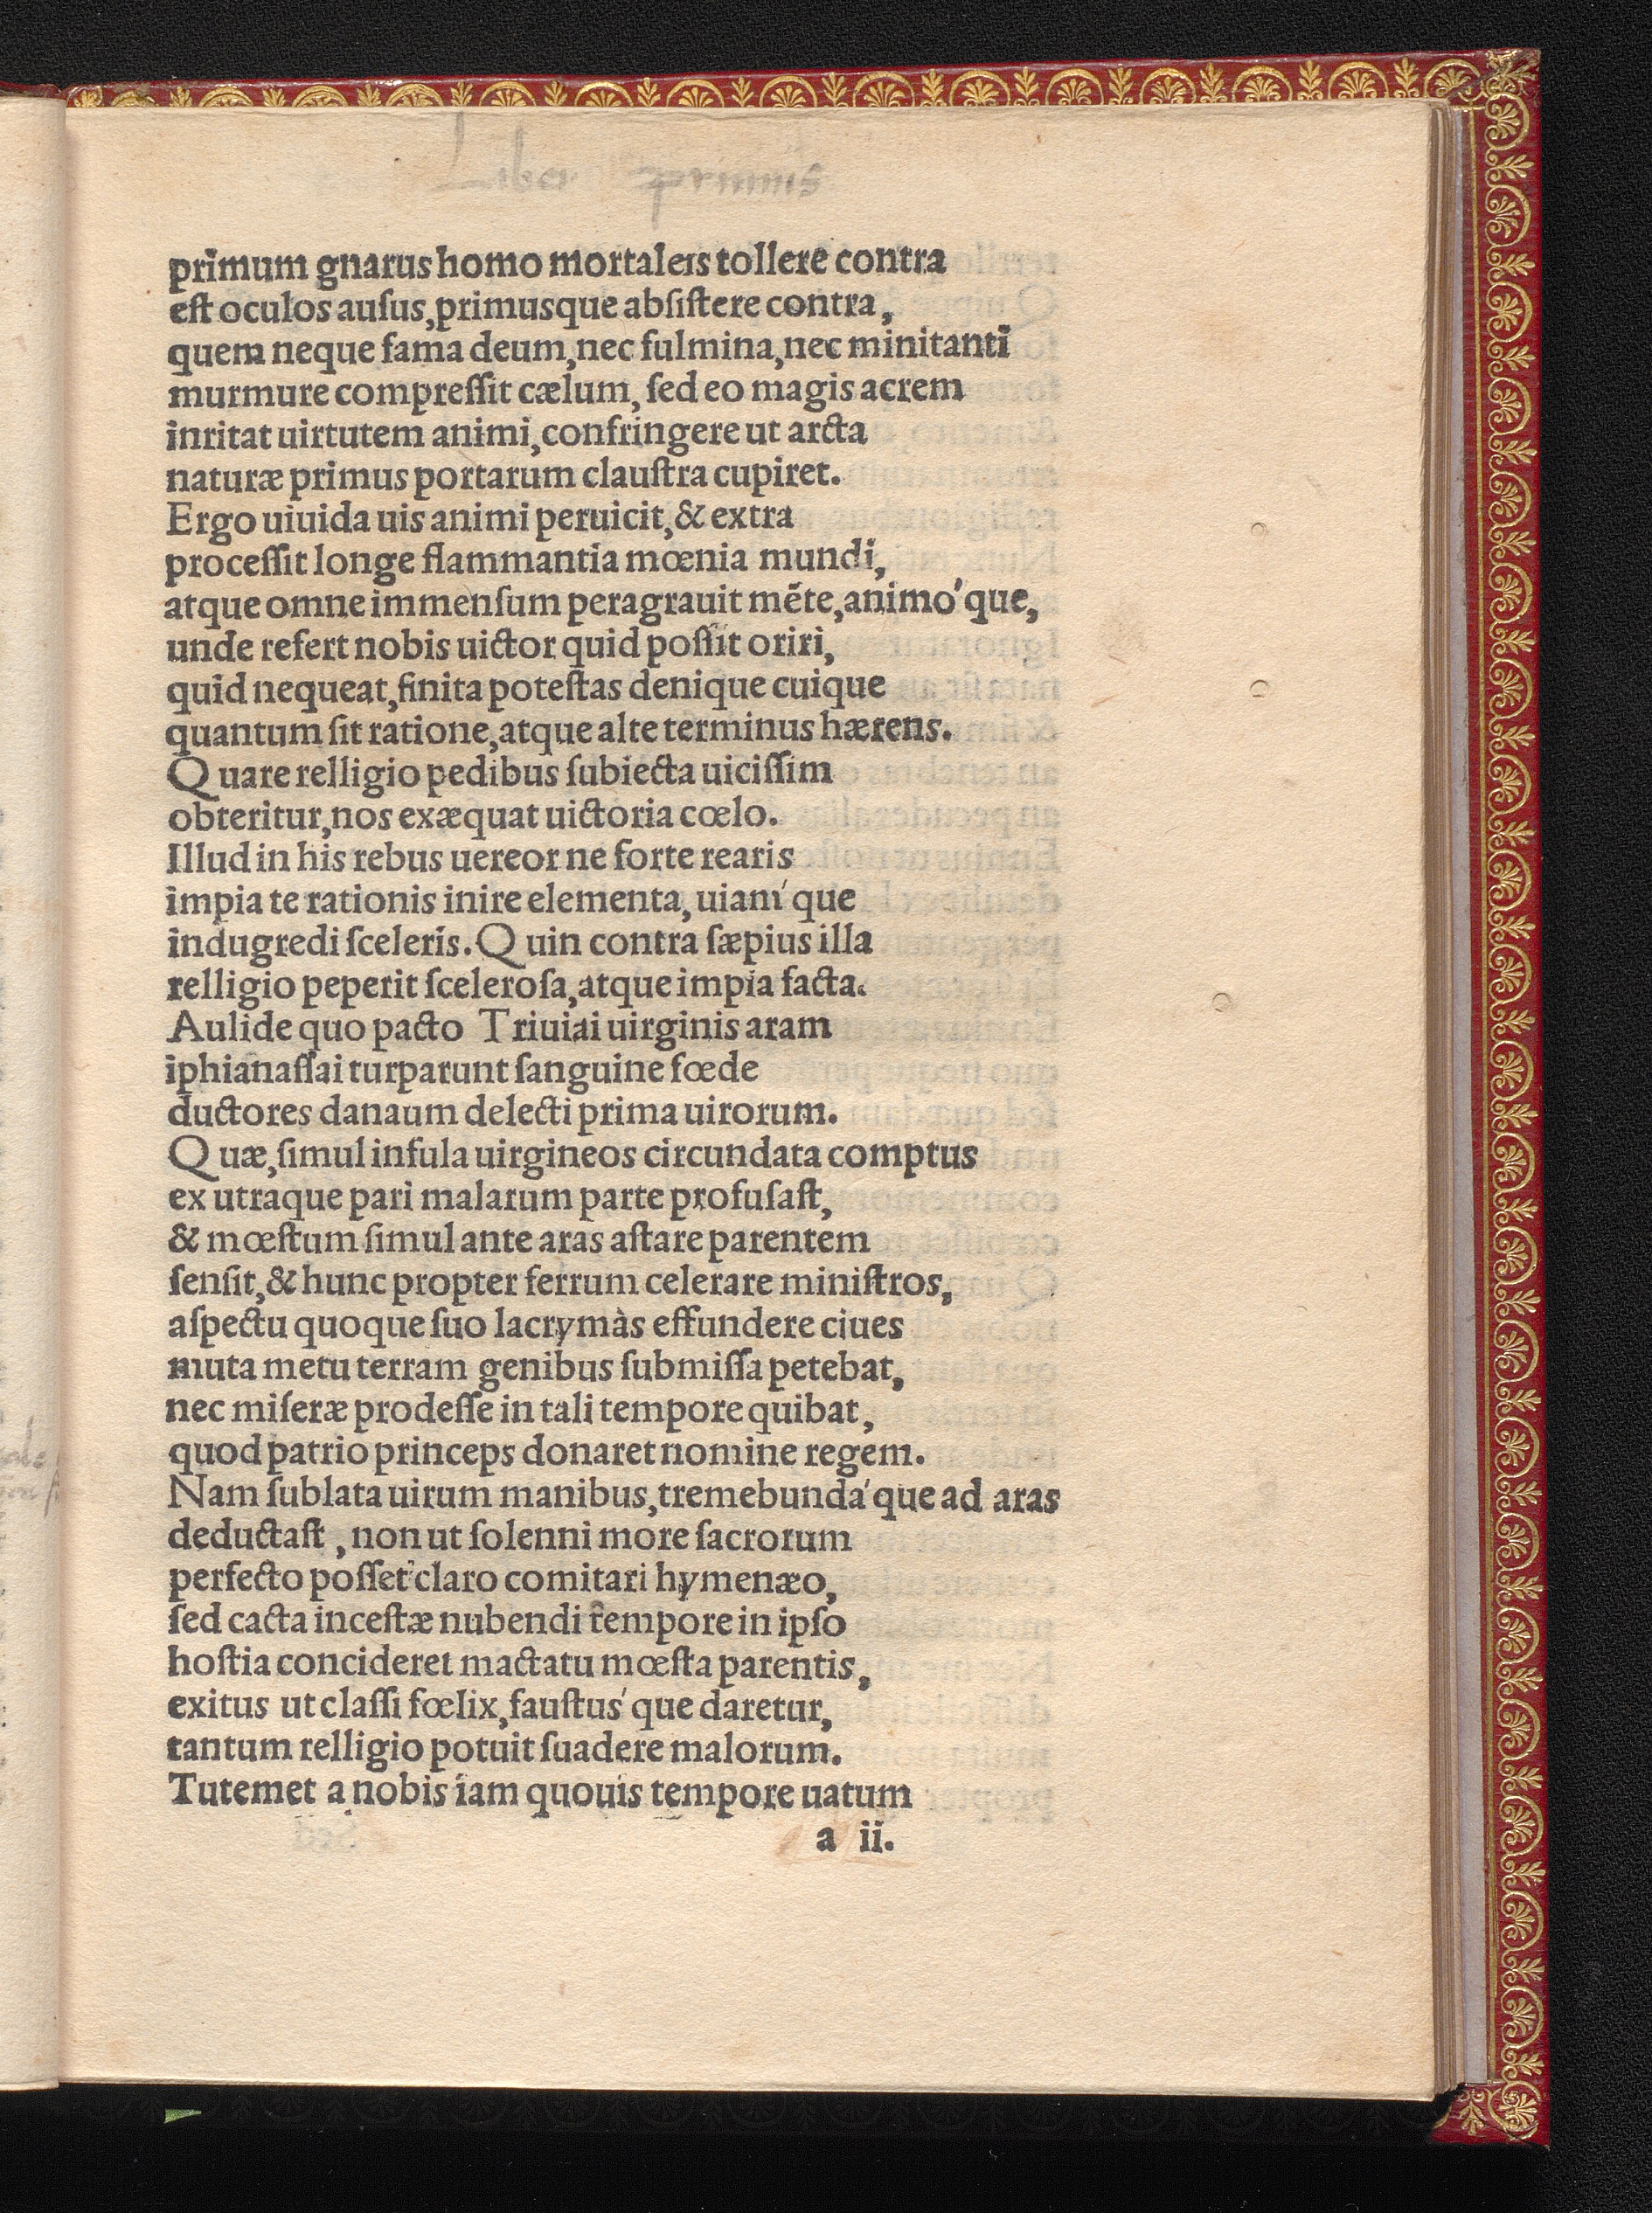 primum gnarus homo mortaleis tollere contra
eſt oculos auſus, primusque abſiſtere contra,
quem neque fama deum, nec fulmina, nec minitanti
murmure compreſſit cælum, ſed eo magis acrem
inritat uirtutem animi, confringere ut arcta
naturæ primus portarum clauſtra cupiret.
Ergo uiuida uis animi peruicit, & extra
proceſſit longe flammantia mœnia mundi,
atque omne immenſum peragrauit mēte, animo'que,
unde refert nobis uictor quid poſſit oriri,
quid nequeat, finita poteſtas denique cuique
quantum ſit ratione, atque alte terminus hærens.
Quare relligio pedibus ſubiecta uiciſſim
obteritur, nos exæquat uictoria cœlo.
Illud in his rebus uereor ne forte rearis
impia te rationis inire elementa, uiam'que
indugredi ſceleris. Quin contra ſæpius illa
relligio peperit ſceleroſa, atque impia facta.
Aulide quo pacto Triuiai uirginis aram
iphianaſſai turparunt ſanguine fœde
ductores danaum delecti prima uirorum.
Quæ, ſimul infula uirgineos circundata comptus
ex utraque pari malarum parte profuſaſt,
& mœſtum ſimul ante aras aſtare parentem
ſenſit, & hunc propter ferrum celerare miniſtros,
aſpectu quoque ſuo lacrymàs effundere ciues
muta metu terram genibus ſubmiſſa petebat,
nec miſeræ prodeſſe in tali tempore quibat,
quod patrio princeps donaret nomine regem.
Nam ſublata uirum manibus, tremebunda'que ad aras
deductaſt, non ut ſolenni more ſacrorum
perfecto poſſet claro comitari hymenæo,
ſed cacta inceſtæ nubendi tempore in ipſo
hoſtia concideret mactatu mœſta parentis,
exitus ut claſſi fœlix, fauſtus'que daretur,
tantum relligio potuit ſuadere malorum.
Tutemet a nobis iam quouis tempore uatum
a ii.